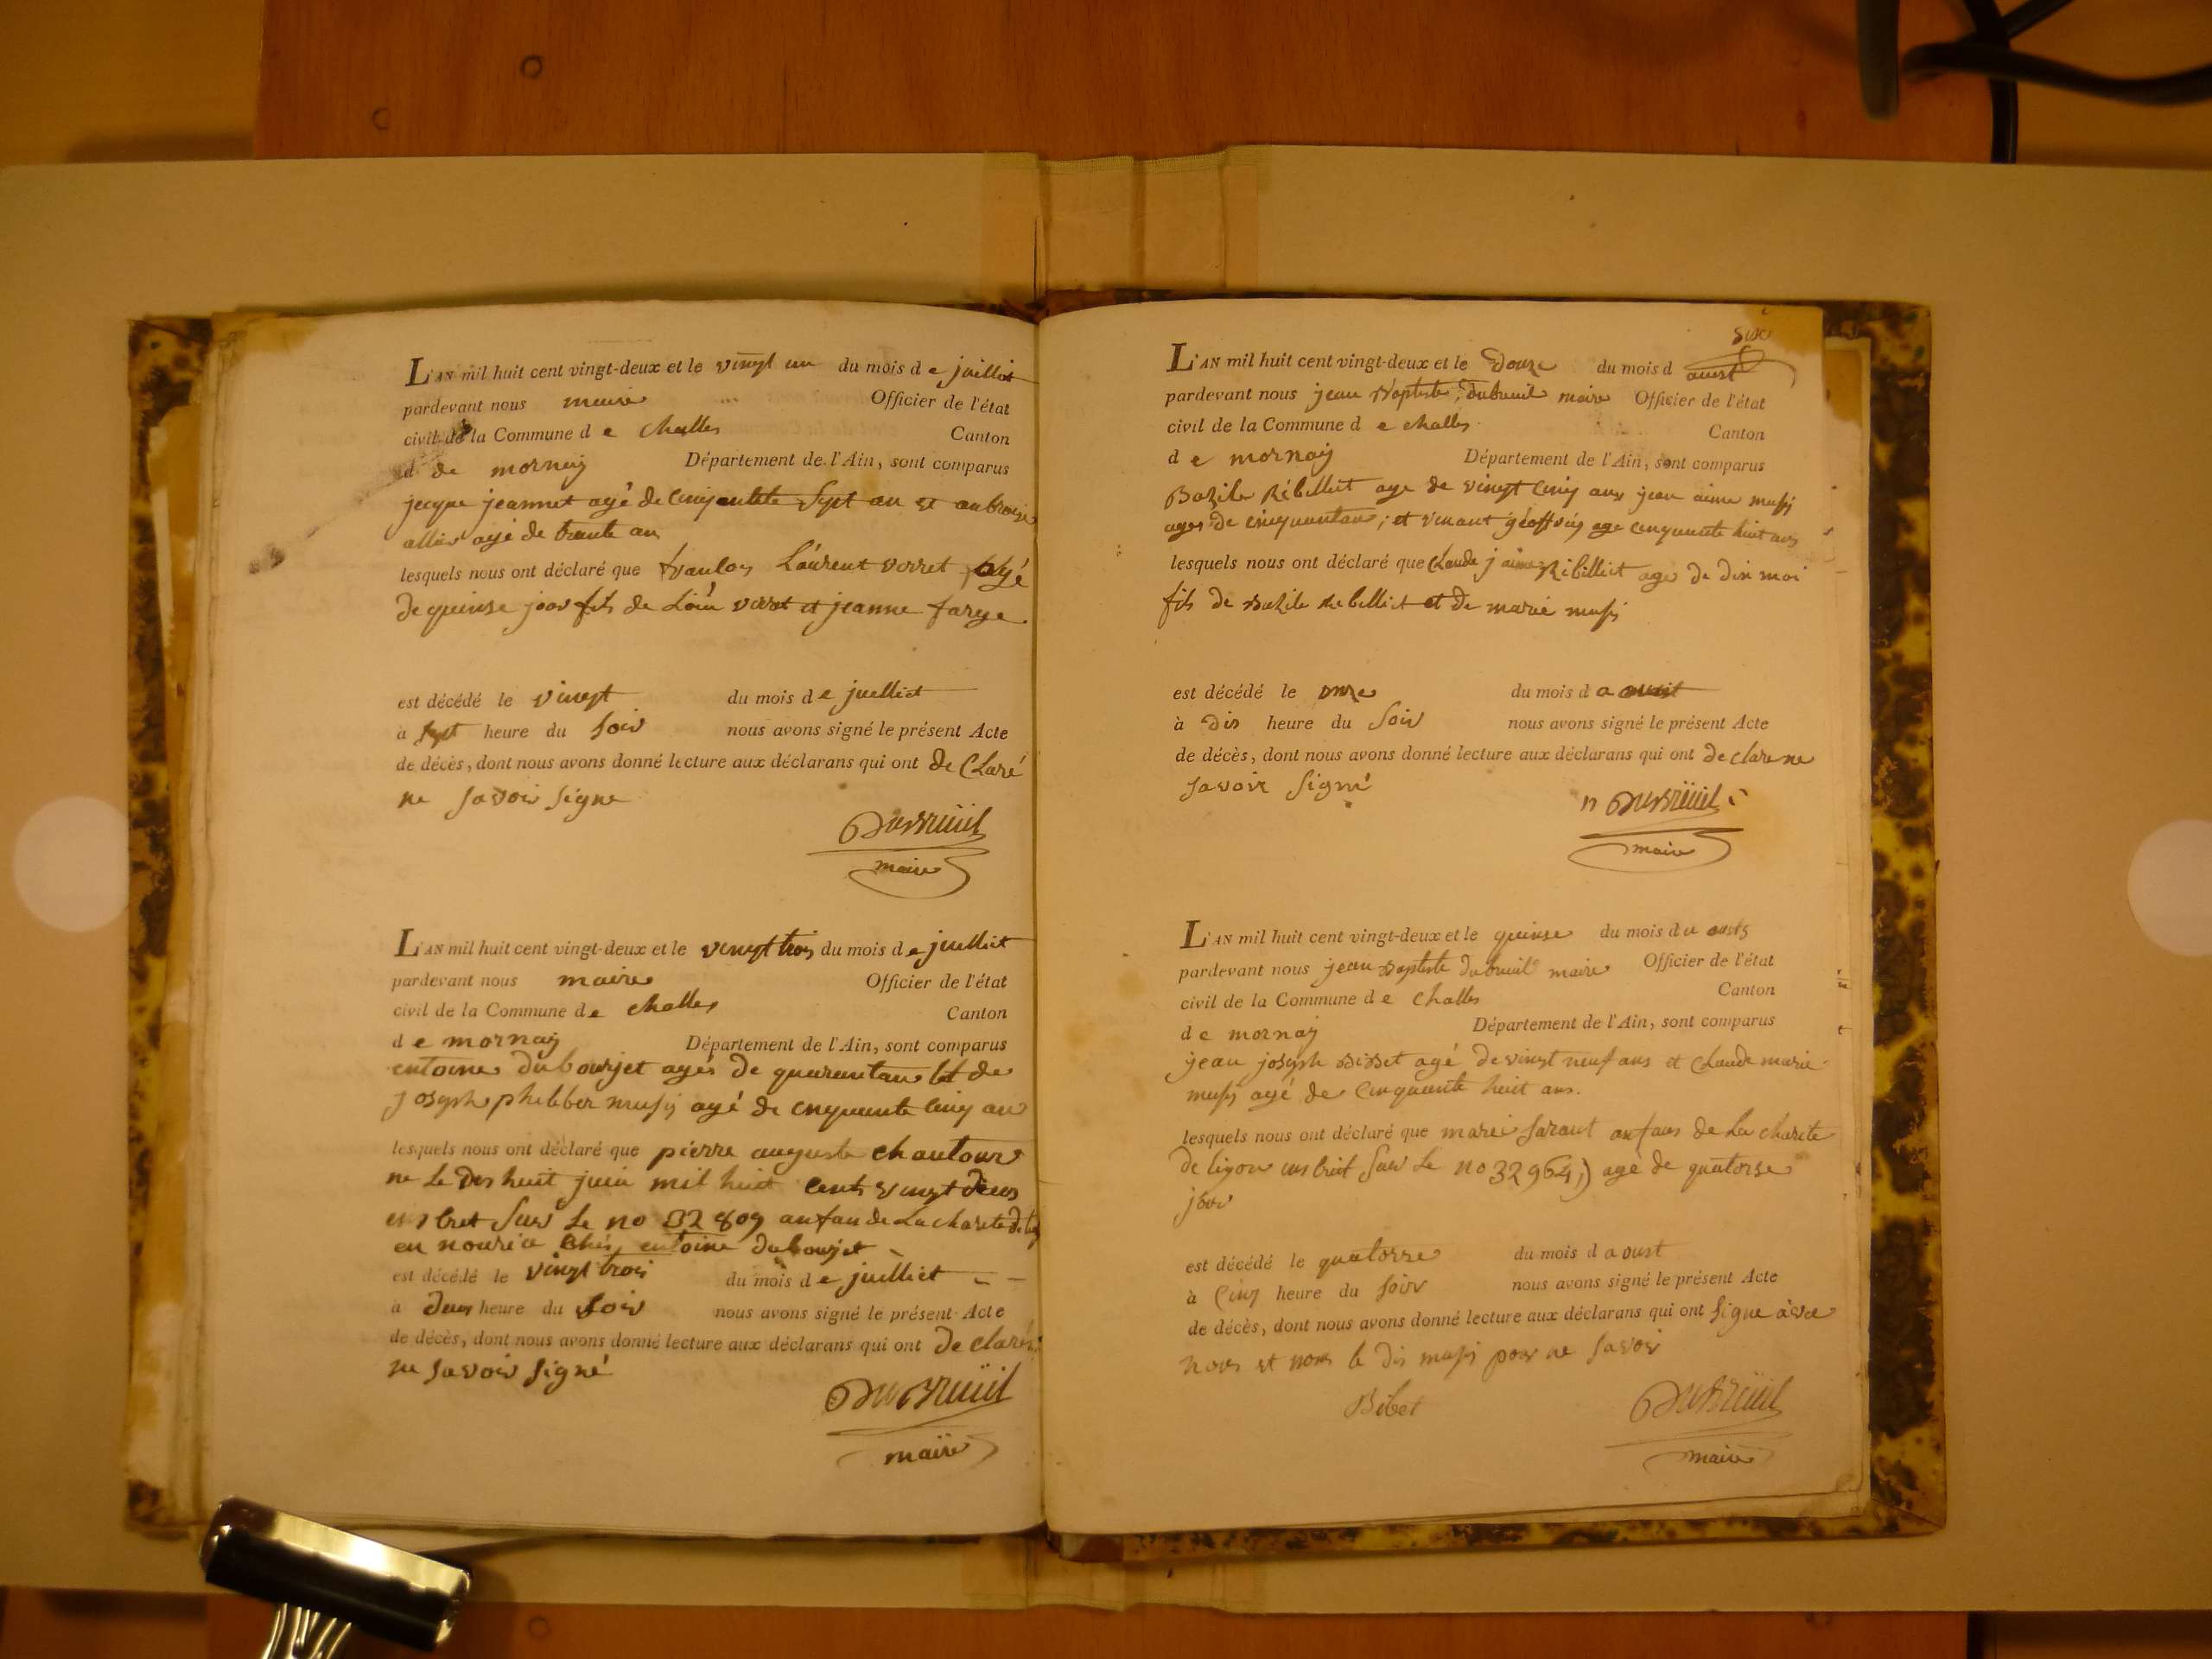 L'AN mil huit cent vingt-deux et le vingt un du mois d e juilliet
pardevant nous maire Officier de l'état
civil de la Commune d e Challes Canton
d de mornay Département de l'Ain, sont comparus
jacque jeannet agé de Cinquantete Sept an et anbroise
allier agé de trente an
lesquels nous ont déclaré que franÇois Laurent verret agé
de quinse jour fils de Loui verret et jeanne farge
est décédé le vingt du mois d e juilliet
à sept heure du Soir nous avons signé le présent Acte
de décès, dont nous avons donné lecture aux déclarans qui ont de Claré
ne Savoir Signe
DuBREüil
maire
L'AN mil huit cent vingt-deux et le vingt trois du mois d e juilliet
pardevant nous maire Officier de l'état
civil de la Commune d e Challes Canton
d e mornay Département de l'Ain, sont comparus
entoine dubourjet agés de quarantan et de
joseph philibber musy agé de cnquante Cinq an
lesquels nous ont déclaré que pierre auguste Chantour
ne le dis huit juin mil huit cents vingt deus
Sur Le no 32 809 anfan de La charite de
en nourice Chés entoine dubourjet
est décédé le vingt trois du mois d e juilliet
à deus heure du Soir nous avons signé le présent Acte
de décès, dont nous avons donné lecture aux déclarans qui ont de claré
ne savoir signé
DuBREüil
maire
six
L'AN mil huit cent vingt-deux et le douze du mois d aoust
pardevant nous jean Baptiste dubreuil maire Officier de l'état
civil de la Commune d e challes Canton
d e mornay Département de l'Ain, sont comparus
Bazile Rébilliet age de vingt Cinq ans jean aime musy
ages de cinquantan; et vinant géoffray age cinquante huit ans
lesquels nous ont déclaré que Claude j aime Rébilliet ages de dix moi
fils de Bazile Rebilliet et de marie musy
est décédé le onze du mois d a oust
à dis heure du Soir nous avons signé le présent Acte
de décès, dont nous avons donné lecture aux déclarans qui ont declare ne
Savoir Signé
DuBREüil
maire
L'AN mil huit cent vingt-deux et le quinse du mois d
pardevant nous jean Baptiste dubreuil maire Officier de l'état
civil de la Commune d e Challes Canton
d e mornay Département de l'Ain, sont comparus
jean joseph Bibet agé de vingt neuf ans et Claude marie
musy agé de Cinquante huit ans.
lesquels nous ont déclaré que marie anfans de La charite
de liyon Sur Le no 32964) agé de quatorse
jour
est décédé le quatorse du mois d a oust
à Cinq heure du soir nous avons signé le présent Acte
de décès, dont nous avons donné lecture aux déclarans qui ont Signe avce
nous et non le dis musy pour ne Savoir
Bibet
DuBREüil
maire